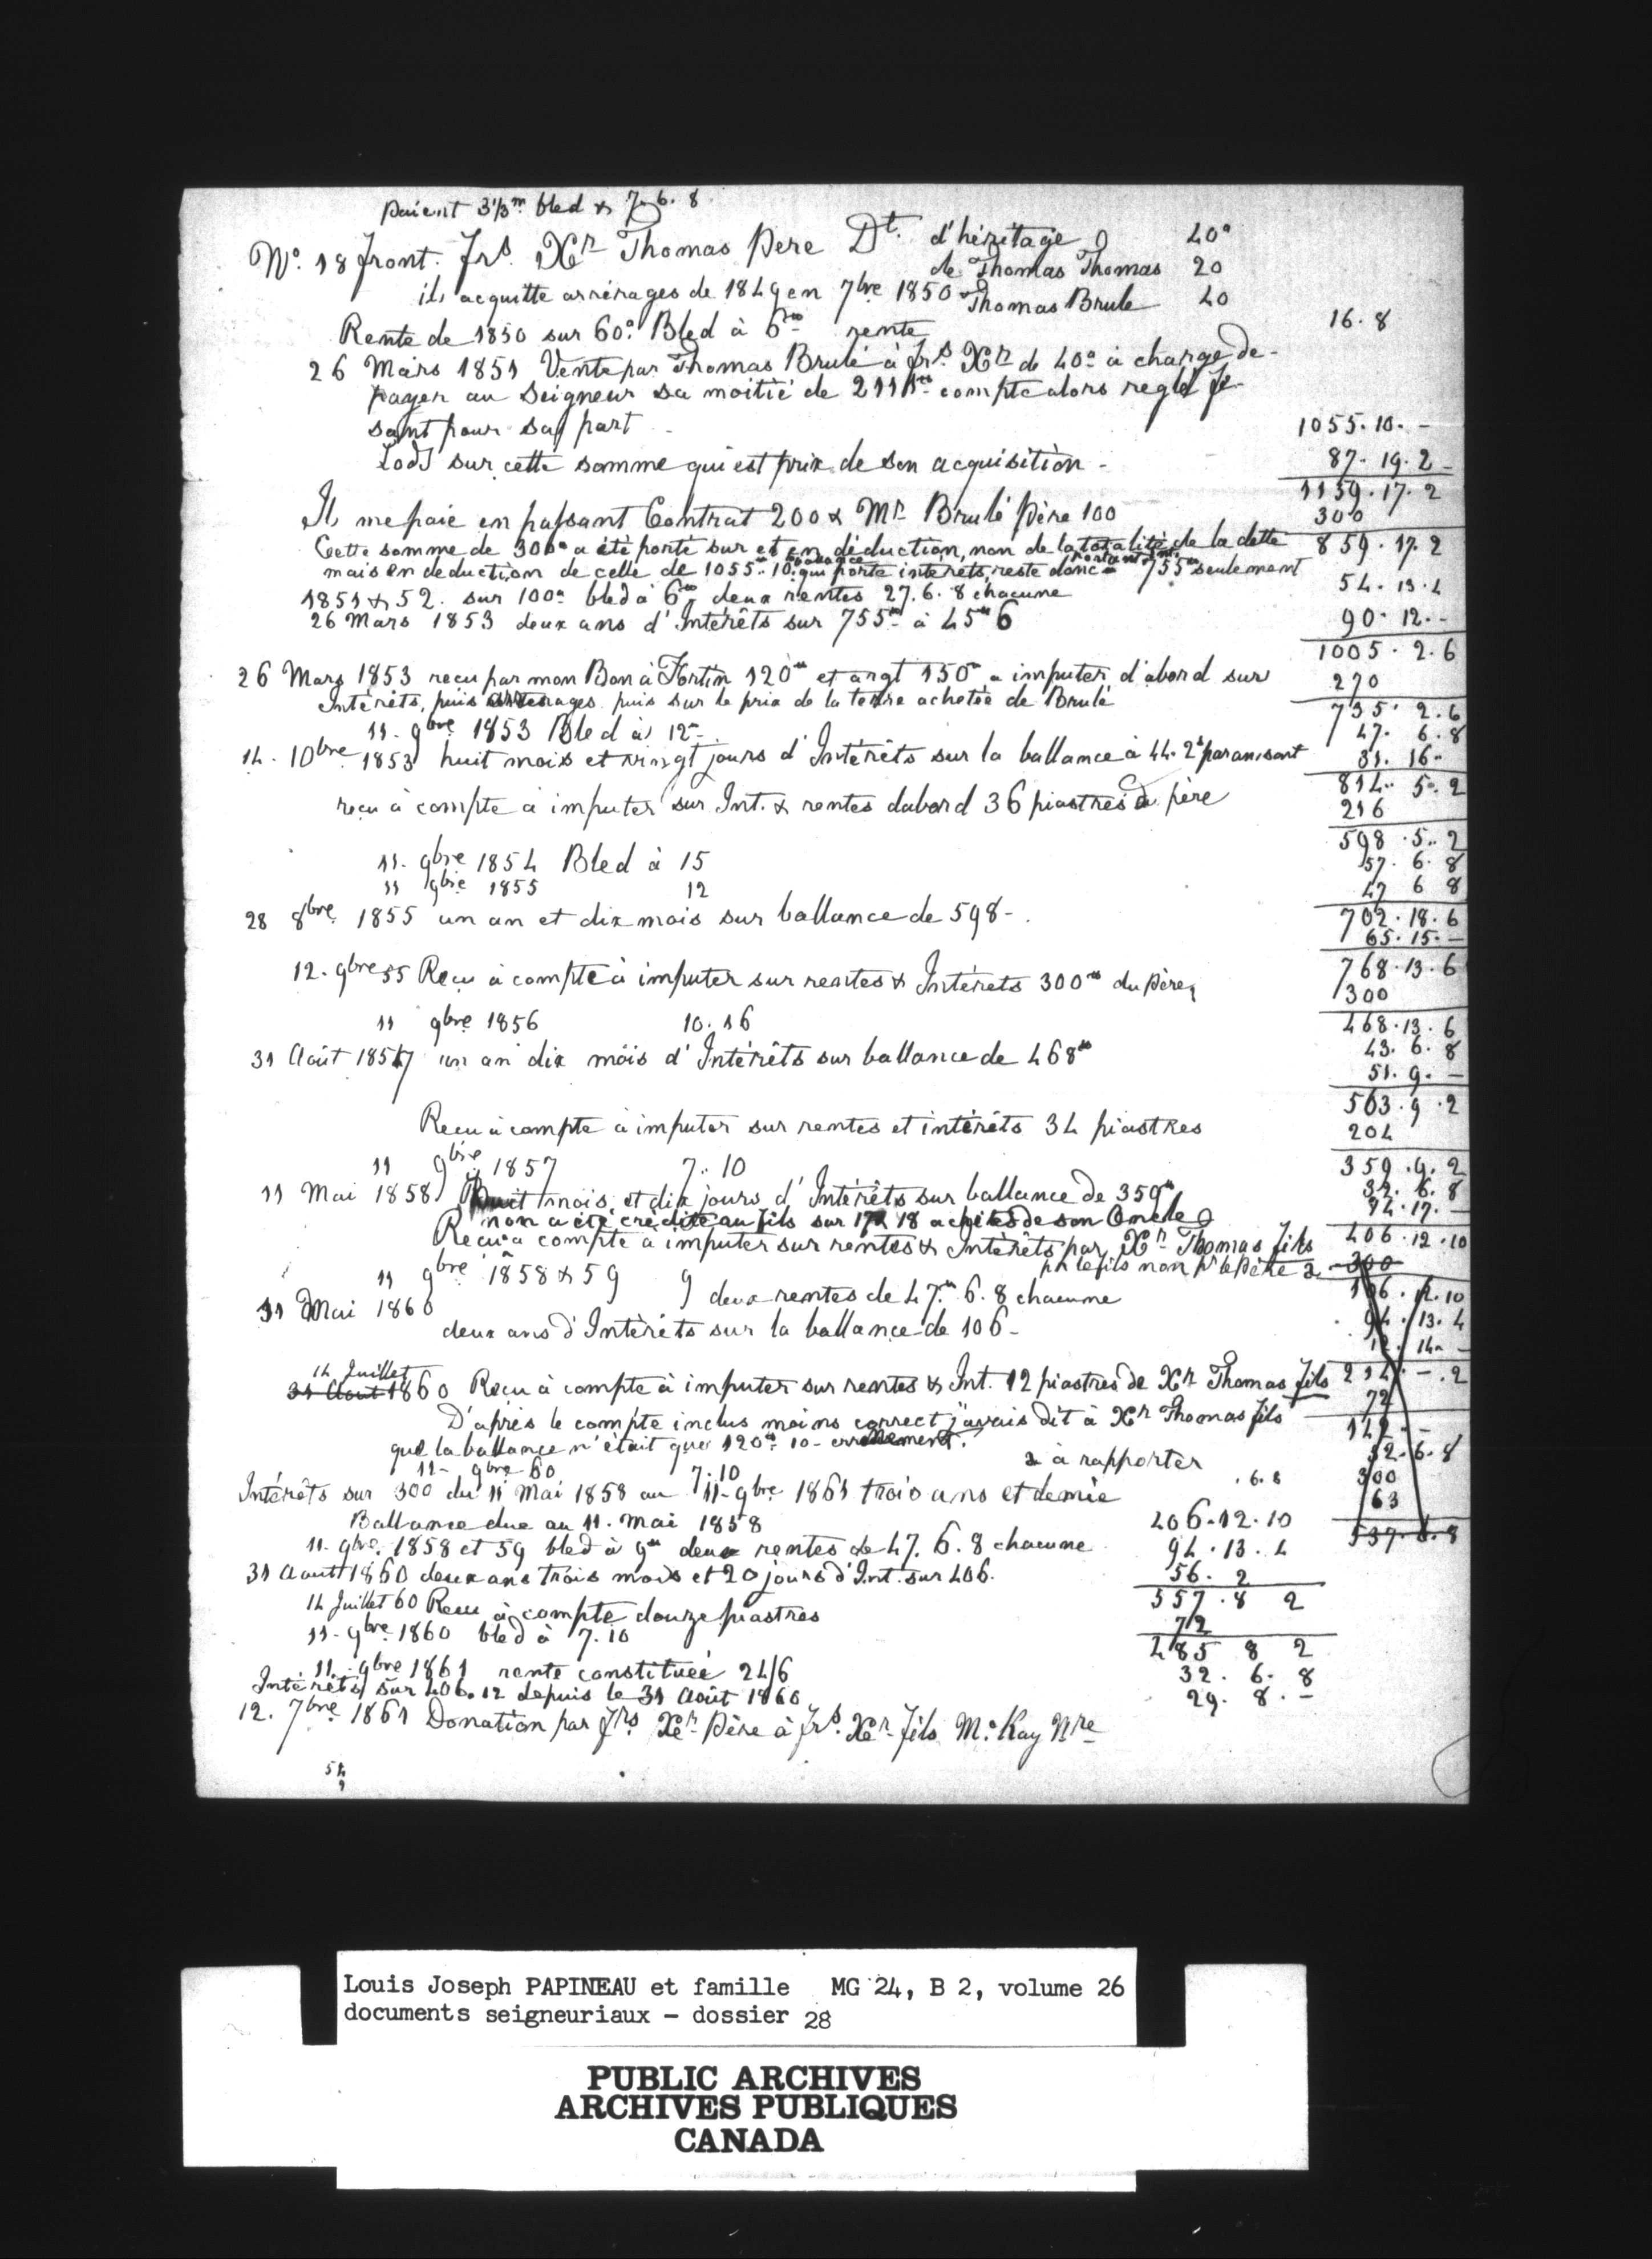 paient 3 1/3 m bled & 7. 6. 8
No. 18 front. Frs. Xer Thomas Pere Dt. d'héritage 40a
de Thomas Thomas 20
il acquitte arrérages de 1849 en 7bre 1850 & Thomas Brulé 40
Rente de 1850 sur 60a Bled à 6tt rente 16. 8
26 Mars 1851 Vente par Thomas Brulé à Frs. Xer de 40a à charge de
payer au Seigneur sa moitié de 2111tt compte alors reglé
sant pour sa part 1055. 10. -
Lods sur cette somme qui est prix de son acquisition - 87. 19. 2
1159. 17. 2
Il me paie en passant Contrat 200 & Mr Brulé Père 100 300
Cette somme de 300tt a été porté sur et en déduction, non de la totalité de la dette 859. 17. 2
mais en deduction de celle de 1055tt. 10. qui porte intérêts, reste donc 755tt seulement
1851 & 52. sur 100a bled à 6tt deux rentes 27. 6. 8 chacune 54. 13. 4
26 Mars 1853 deux ans d'Intérêts sur 755tt à 45tt 6 90. 12. -
1005. 2. 6
26 Mars 1853 recu par mon Bon à Fortin 120tt et argt 150tt a imputer d'abord sur 270
Intérêts, puis arrerages puis sur le prix de la terre achetée de Brulé
735. 2. 6
11. 9bre 1853 Bled à 12tt 47. 6. 8
14. 10bre 1853 huit mois et vingt jours d'Intérêts sur la ballance à 44. 2s par an sont 31. 16-
814. 5. 2
reçu à compte à imputer sur Int. & rentes dabord 36 piastres du père 216
598. 5. 2
11. 9bre 1854 Bled à 15 57. 6. 8
11 9bre 1855 12 47 6 8
702. 18. 6
28 8bre 1855 un an et dix mois sur ballance de 598-. 65. 15. -
768. 13. 6
12. 9bre 55 Recu à compte à imputer sur rentes & Intérets 300tt du père, 300
468. 13. 6
11 9bre 1856 10. 16 43. 6. 8
31 Août 1857 un an dix mois d'Intérêts sur ballance de 468tt 51. 9. -
563. 9. 2
Recu à compte à imputer sur rentes et intérêts 34 piastres 204
359. 9. 2
11 9bre 1857 7. 10 32. 6. 8
11 Mai 1858 Huit mois et dix jours d'Intérêts sur ballance de 359tt 14. 17. -
non a été crédité au fils sur 17 & 18 achetés de son Oncle
Recu a compte à imputer sur rentes & Intérêts par Xer Thomas fils 406. 12. 10
pr le fils non pr le père 2 300
106. 12. 10
11 9bre 1858 & 59 9 deux rentes de 47tt. 6. 8 chacune 94. 13. 4
31 Mai 1860 deux ans d'Intérêts sur la ballance de 106- 12. 14. -
14 Juillet
31 Aout 1860 Reçu à compte à imputer sur rentes & Int. 12 piastres de Xer Thomas fils 214 - . 2
72
D'après le compte inclus moins correct j'avais dit à Xer Thomas fils 142 - -
que la ballance n'était que 120tt. 10- erronément.
11- 9bre 60 7. 10 32. 6. 8
2 à rapporter 300
Intérêts sur 300 du 11 Mai 1858 au 11- 9bre 1861 trois ans et demie . 6. 8 63
537. 6. 8
Ballance due au 11. Mai 1858 406. 12. 10
11- 9bre 1858 et 59 bled à 9tt deux rentes de 47. 6. 8 chacune 94. 13. 4
31 Aout 1860 deux ans trois mois et 20 jours d'Int. sur 406. 56. 2
557. 8 2
14 Juillet 60 Recu à compte douze piastres 72
485 8 2
11- 9bre 1860 bled à 7. 10 32. 6. 8
11- 9bre 1861 rente constituée 24/6
Intérêts sur 406. 12 depuis le 31 Août 1860 29. 8. -
12. 7bre 1861 Donation par Frs Xer Père à Frs. Xer fils Mc Kay Nre
Louis Joseph PAPINEAU et famille MG 24, B 2, volume 26
documents seigneuriaux - dossier 28
PUBLIC ARCHIVES
ARCHIVES PUBLIQUES
CANADA